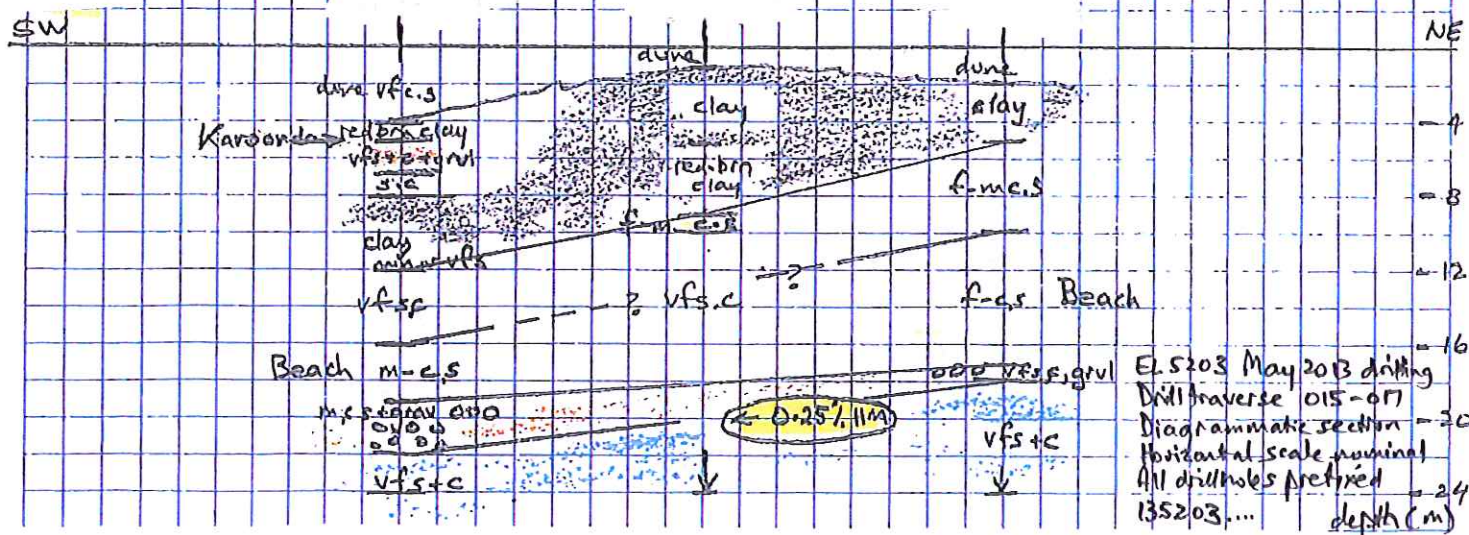 SW
NE
dune
dune
dune vfc.s
clay
clay
Karoonda
red brn clay
- 4
vfs+c+grvl
s.c
red-brn
clay
f-mc,s
- 8
f. m. c.s
clay
minor vfs
- 12
vf-sc
?
vfs.c
?
f-c,s
Beach
- 16
Beach
m-c,s
vfs,s, grvl
m,c,s+grav
← 0.25% 11m
vfs+c
- 20
vfs+c
- 24
EL 5203 May 2013 drilling
Drill traverse 015-017
Diagrammatic section
Horizontal scale nominal
All drillholes prefixed
135203....
depth (m)